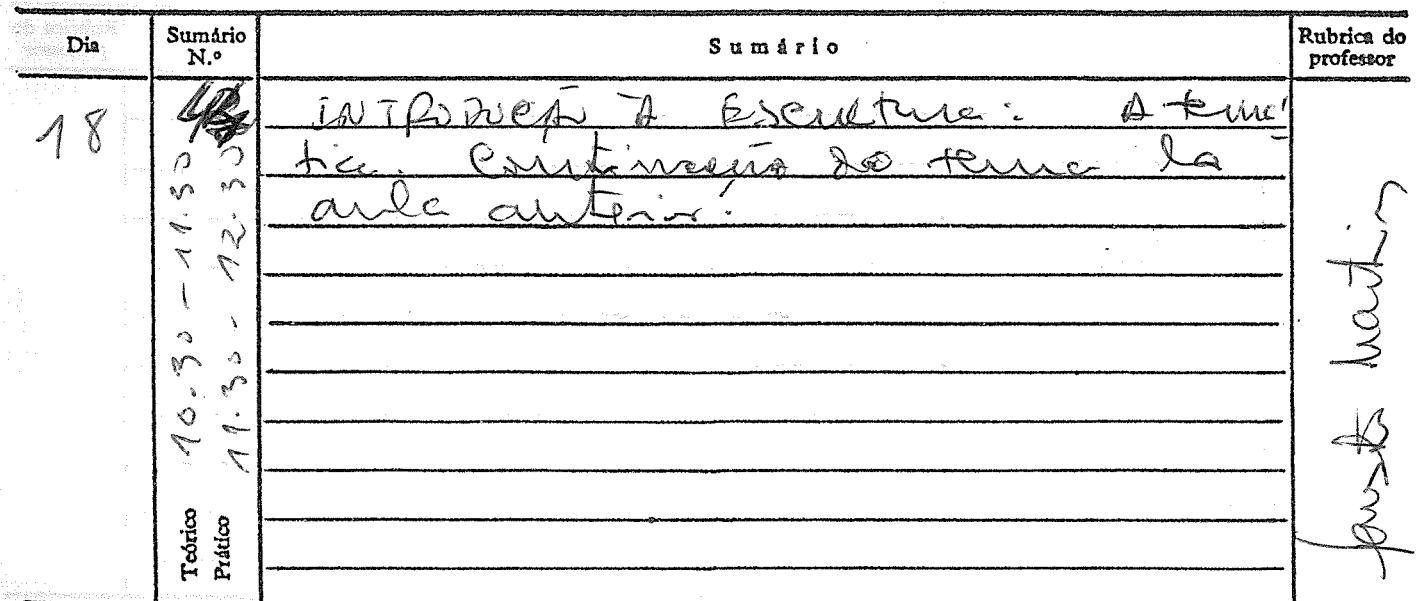 Dia
Sumário
N.º
Sumário
Rubrica do
professor
18
Teórico 10.30 - 11.30
Prático 11.30 - 12.30
INTRODUÇÃO À Escultura: A temá
tica. Continuação do tema da
aula anterior.
Fausto Martins